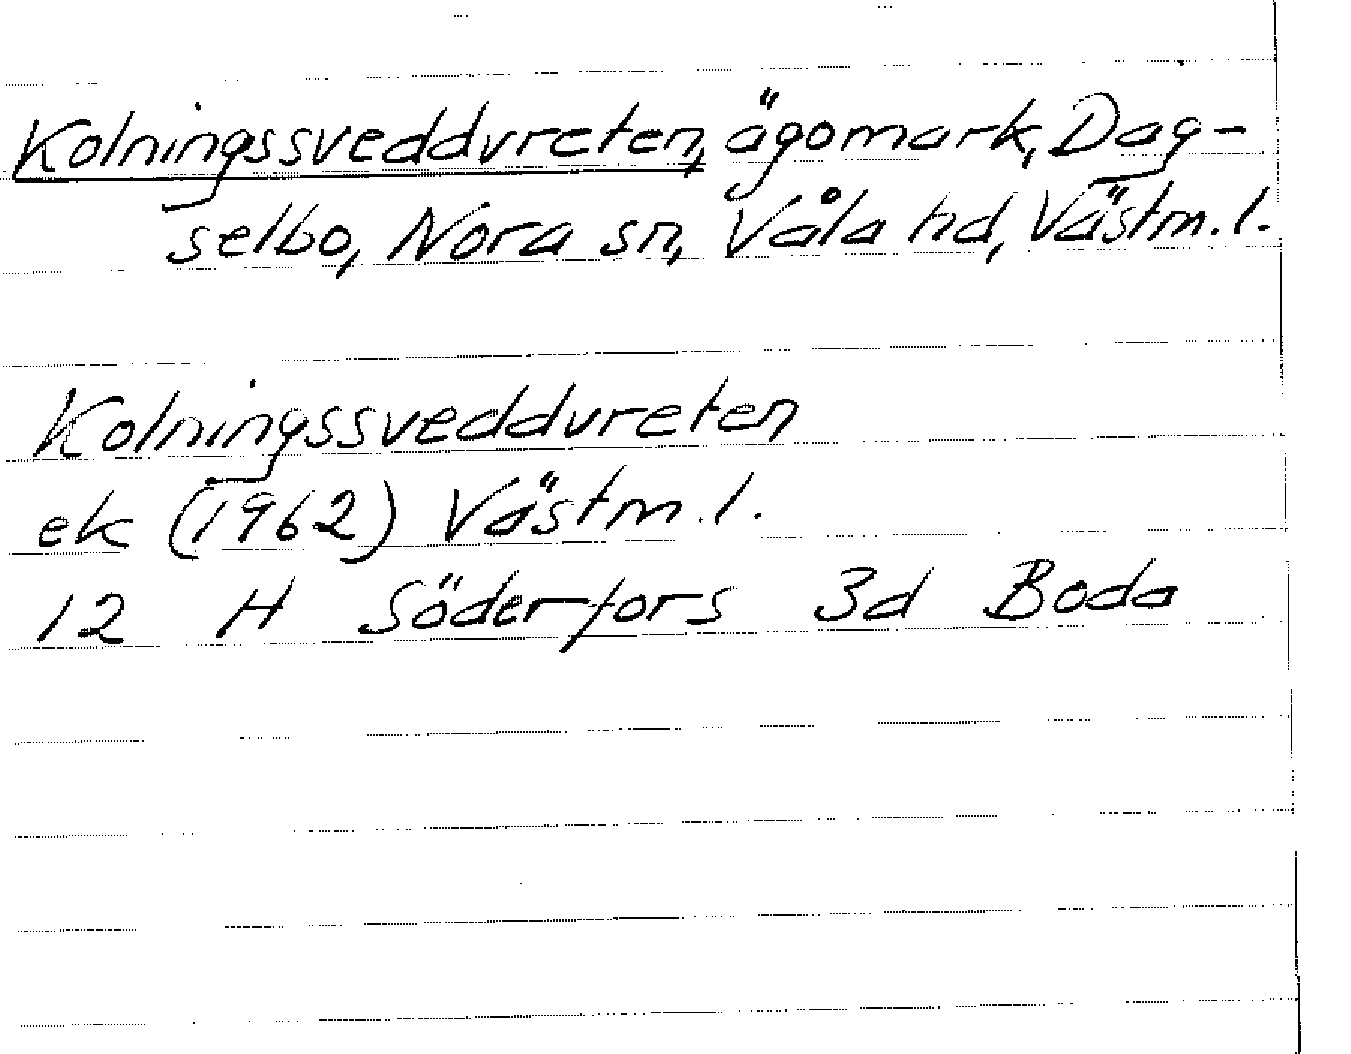 Kolningssveddvreten, ägomark, Dag-
selbo, Nora sn, Våla hd, Västm.l.
Kolningssveddvreten
ek (1962) Västm.l.
12 H Söderfors 3d Boda